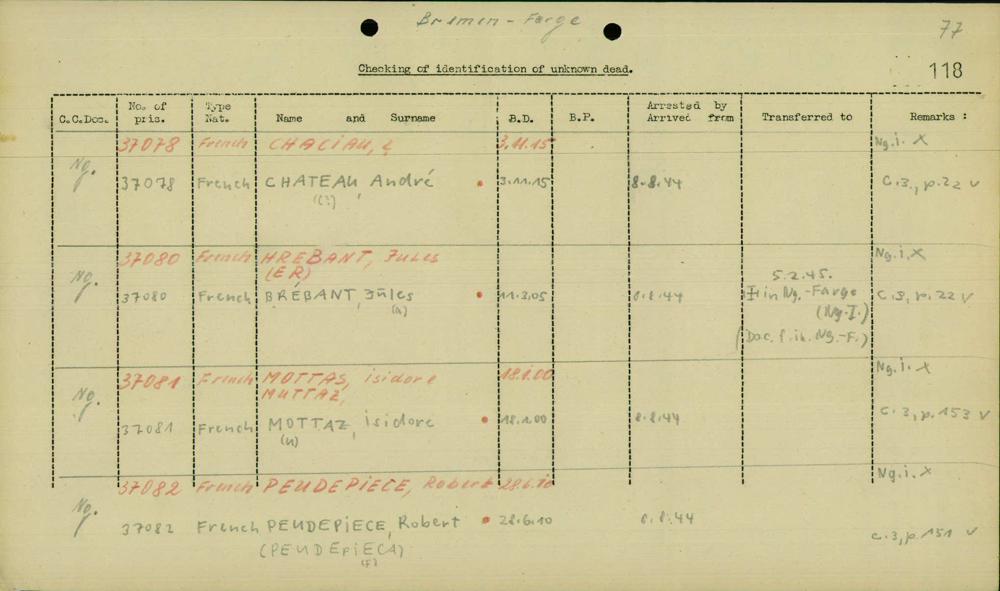 Bremen-Farge
77
Checking of identification of unknown dead.
118
C.C.Doc. No. of pris. Type Nat. Name and Surname B.D. B.P. Arrested by Arrived from Transferred to Remarks :
37078 French CHACIAU, 3.11.15 Ng.i. X
Ng.
37078 French CHATEAU, André 3.11.15 8.8.44 C.3., p.22 v
37080 French HREBANT, Jules Ng.i. X
(ER)
Ng. 5.2.45.
37080 French BRÉBANT, Jules 11.3.05 8.8.44 in Ng.-Farge C.3, p.22 v
(Ng.I.)
(Doc. f. in. Ng.-F.)
37081 French MOTTAS, isidore 18.1.00 Ng.i. X
MUTTAZ,
Ng.
37081 French MOTTAZ, isidore 18.1.00 8.8.44 C.3, p.153 v
(U)
37082 French PEUDEPiECE, Robert 28.6.10 Ng.i. X
Ng.
37082 French PEUDEPiECE, Robert 28.6.10 8.8.44 C.3, p.151 v
(PEUDEPiECA)